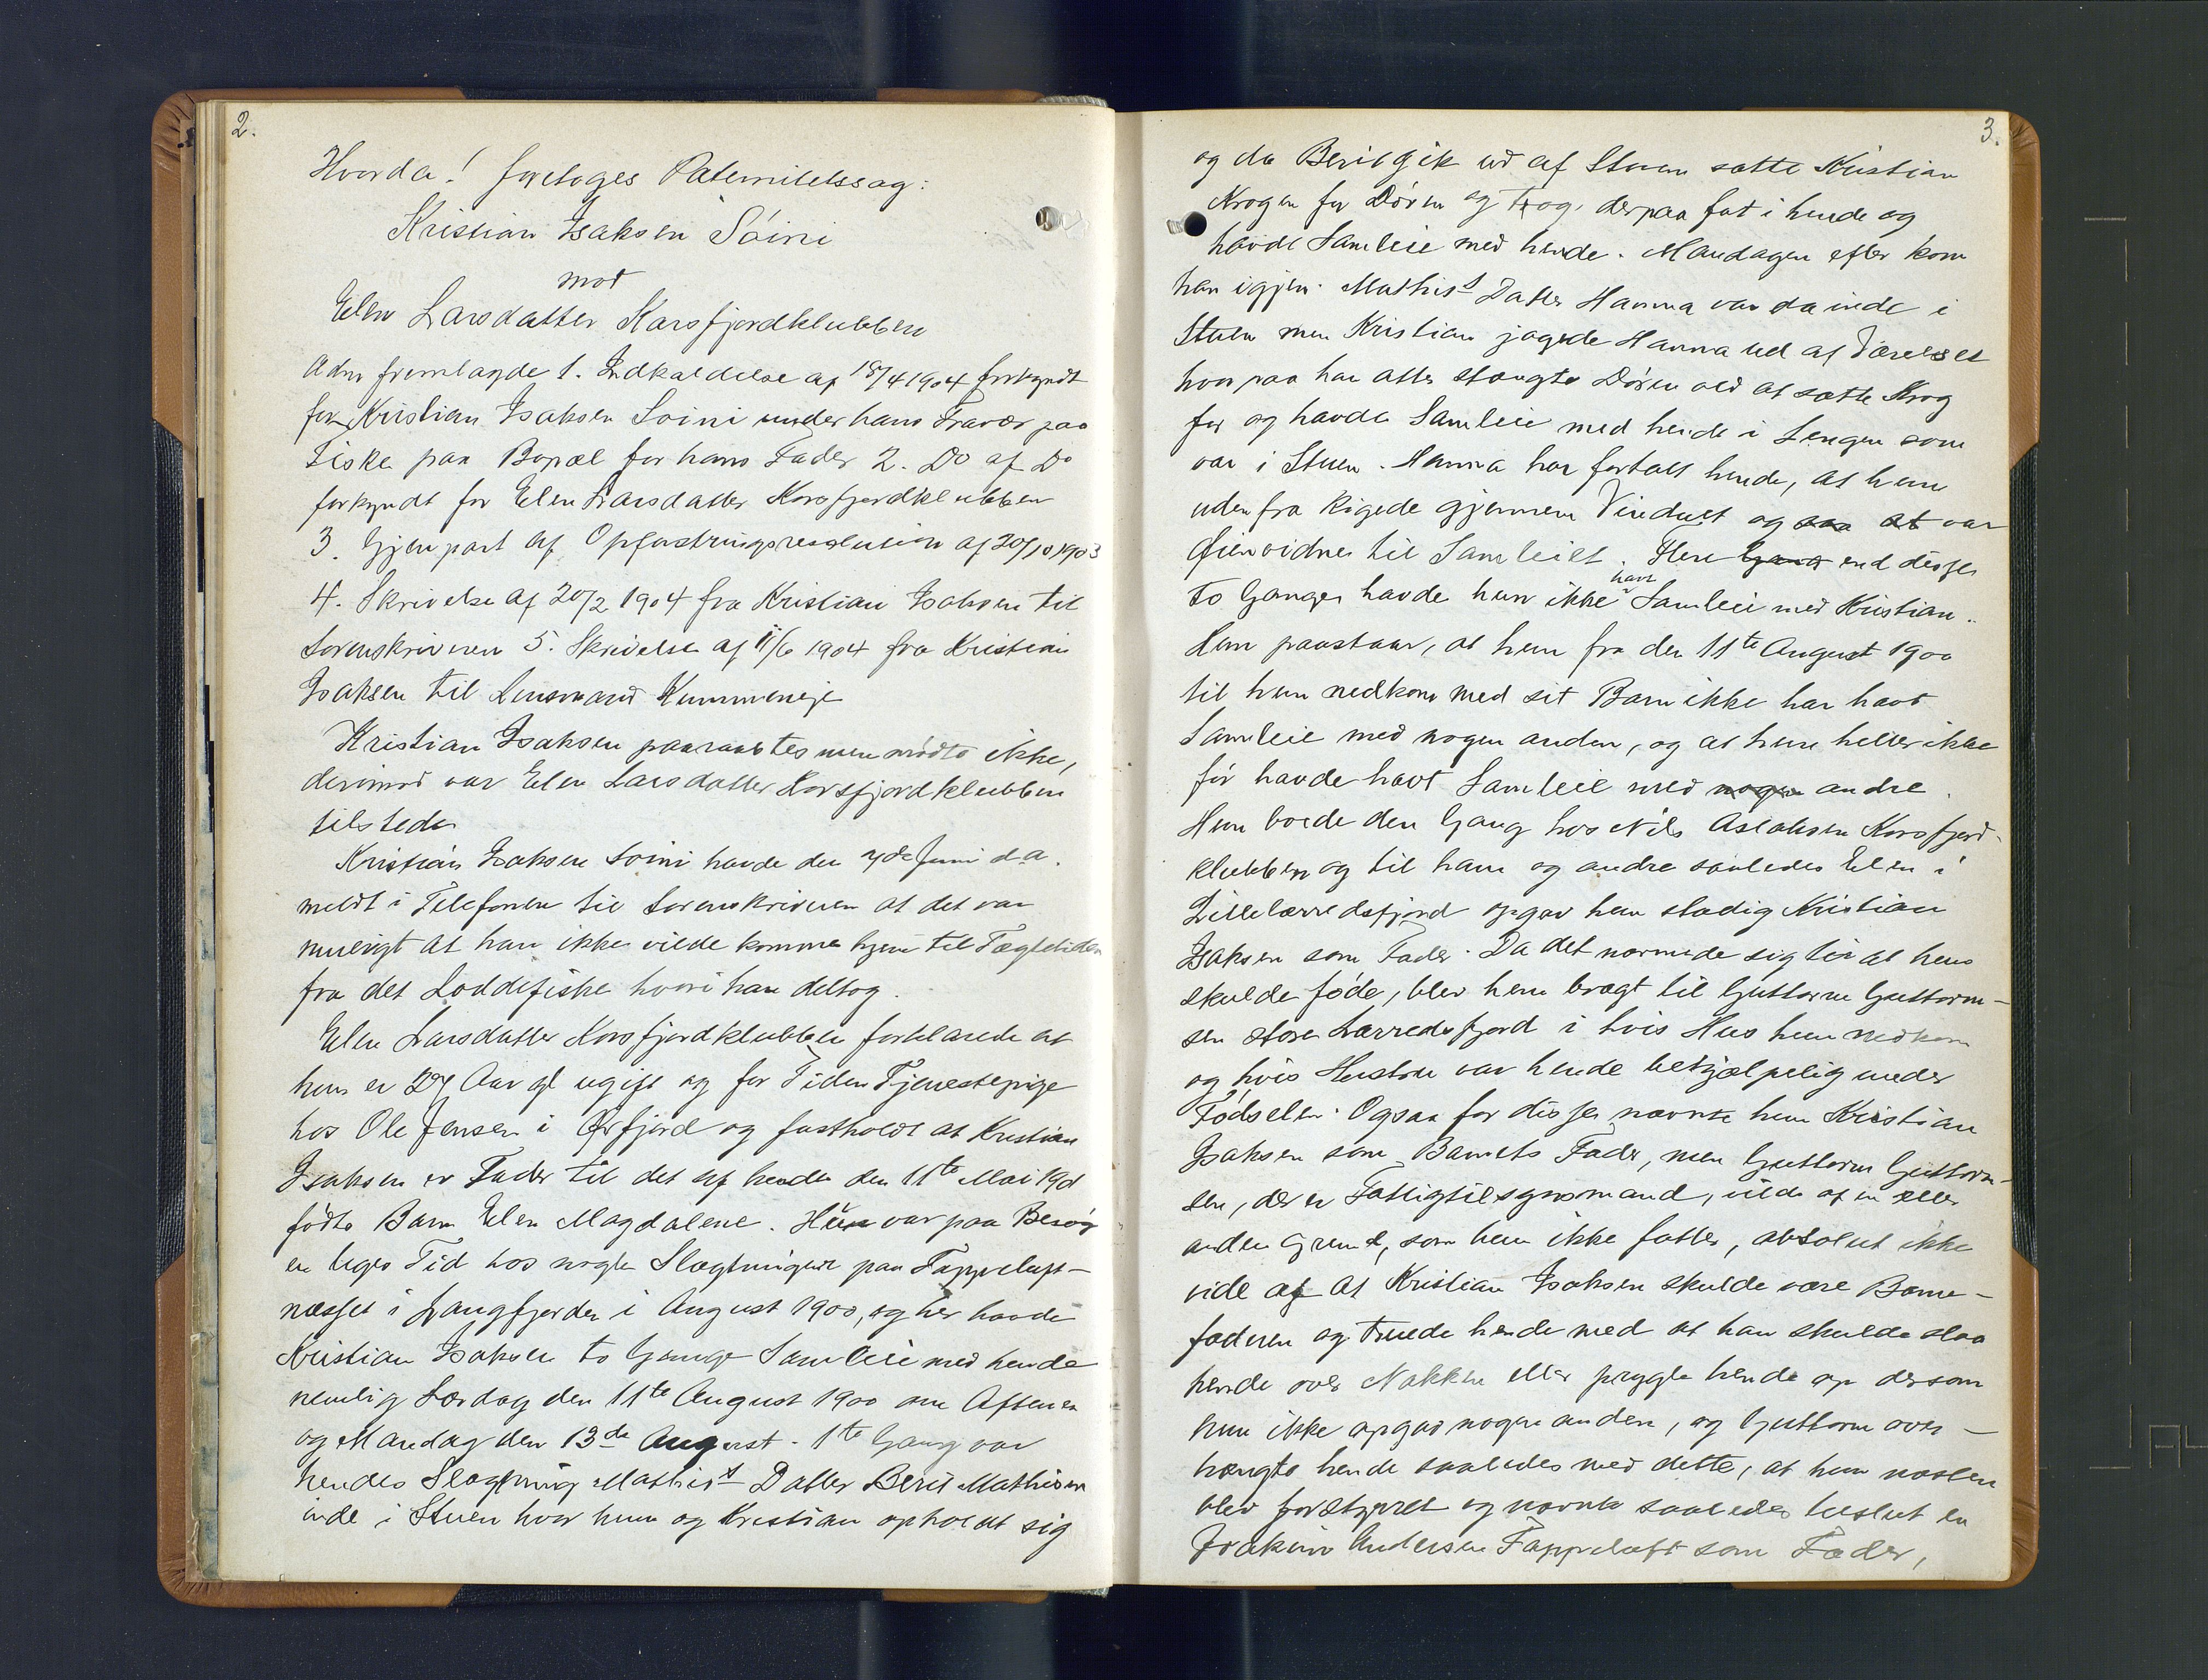 2.
Hvorda! foretoges Paternitetssag:
Kristian Isaksen Soini
mod
Elen Larsdatter Korsfjordklubben
Adm fremlagde 1. Indkaldelse af 18/4 1904 forkyndt
for Kristian Isaksen Soini under hans Fravær paa
Fiske paa Bopæl for hans Fader 2. Do af Do
forkyndt for Elen Larsdatter Korsfjordklubben
3. Gjenpart af Opfostringsresolution af 20/10 1903
4. Skrivelse af 20/2 1904 fra Kristian Isaksen til
Sorenskriveren 5. Skrivelse af 1/6 1904 fra Kristian
Isaksen til Lensmand Kummeneje
Kristian Isaksen paaraabtes men mødte ikke,
derimod var Elen Larsdatter Korsfjordklubben
tilstede
Kristian Isaksen Soini havde den 7de Juni d.a.
meldt i Telefonen til Sorenskriveren at det var
muligt at han ikke vilde komme hjem til Tægtetiden
fra det Loddefiske hvori han deltog.
Elen Larsdatter Korsfjordklubben forklarede at
hun er 27 Aar gl ugift og for Tiden Tjenestepige
hos Ole Jensen i Øxfjord og fastholdt at Kristian
Isaksen er Fader til det af hende den 11te Mai 1901
fødte Barn Elen Magdalene. Hun var paa Besøg
en Uges Tid hos nogle Slægtninger paa Tappeluft-
næsset i Langfjorden i August 1900, og her havde
Kristian Isaksen to Gange Samleie med hende
nemlig Lørdag den 11te August 1900 om Aftenen
og Mandag den 13de August. 1te Gang var
hendes Slægtning Mathis's Datter Berit Mathisen
inde i Stuen hvor hun og Kristian opholdt sig
3.
og da Berit gik ud af Stuen satte Kristian
Krogen for Døren og tog derpaa fat i hende og
havde Samleie med hende. Mandagen efter kom
han igjen. Mathis's Datter Hanna var da inde i
Stuen men Kristian jagede Hanna ud af Værelset
hvor paa han atter stængte Døren ved at sætte Krog
for og havde Samleie med hende i Sengen som
var i Stuen. Hanna har fortalt hende, at hun
udenfra kigede gjennem Vinduet og saa at var
Øienvidne til Samleiet. Flere Gang end disse
to Ganger havde hun ikke havt Samleie med Kristian.
Hun paastaar, at hun fra den 11te August 1900
til hun nedkom med sit Barn ikke har havt
Samleie med nogen anden, og at hun heller ikke
før havde havt Samleie med nogen andre.
Hun boede den Gang hos Nils Aslaksen Korsfjord-
klubben og til ham og andre saaledes Elen i
Lillelærredsfjord opgav hun stadig Kristian
Isaksen som Fader. Da det nærmede sig til at hun
skulde føde, blev hun bragt til Guttorm Guttorm-
sen Store Lærredsfjord i hvis Hus hun nedkom
og hvis Hustru var hende behjælpelig under
Fødselen. Ogsaa for disse nævnte hun Kristian
Isaksen som Barnets Fader, men Guttorm Guttorm-
sen, der er Fattigtilsynsmand, vilde af en eller
anden Grund, som hun ikke fatter, absolut ikke
vide af at Kristian Isaksen skulde være Barne-
faderen og truede hende med at han skulde slaa
hende over Nakken eller prygle hende op dersom
hun ikke opgav nogen anden, og Guttorm over-
hængte hende saaledes med dette, at hun næsten
blev forstyrret og nævnte saaledes tilslut en
Joakim Andersen Tappeluft som Fader,